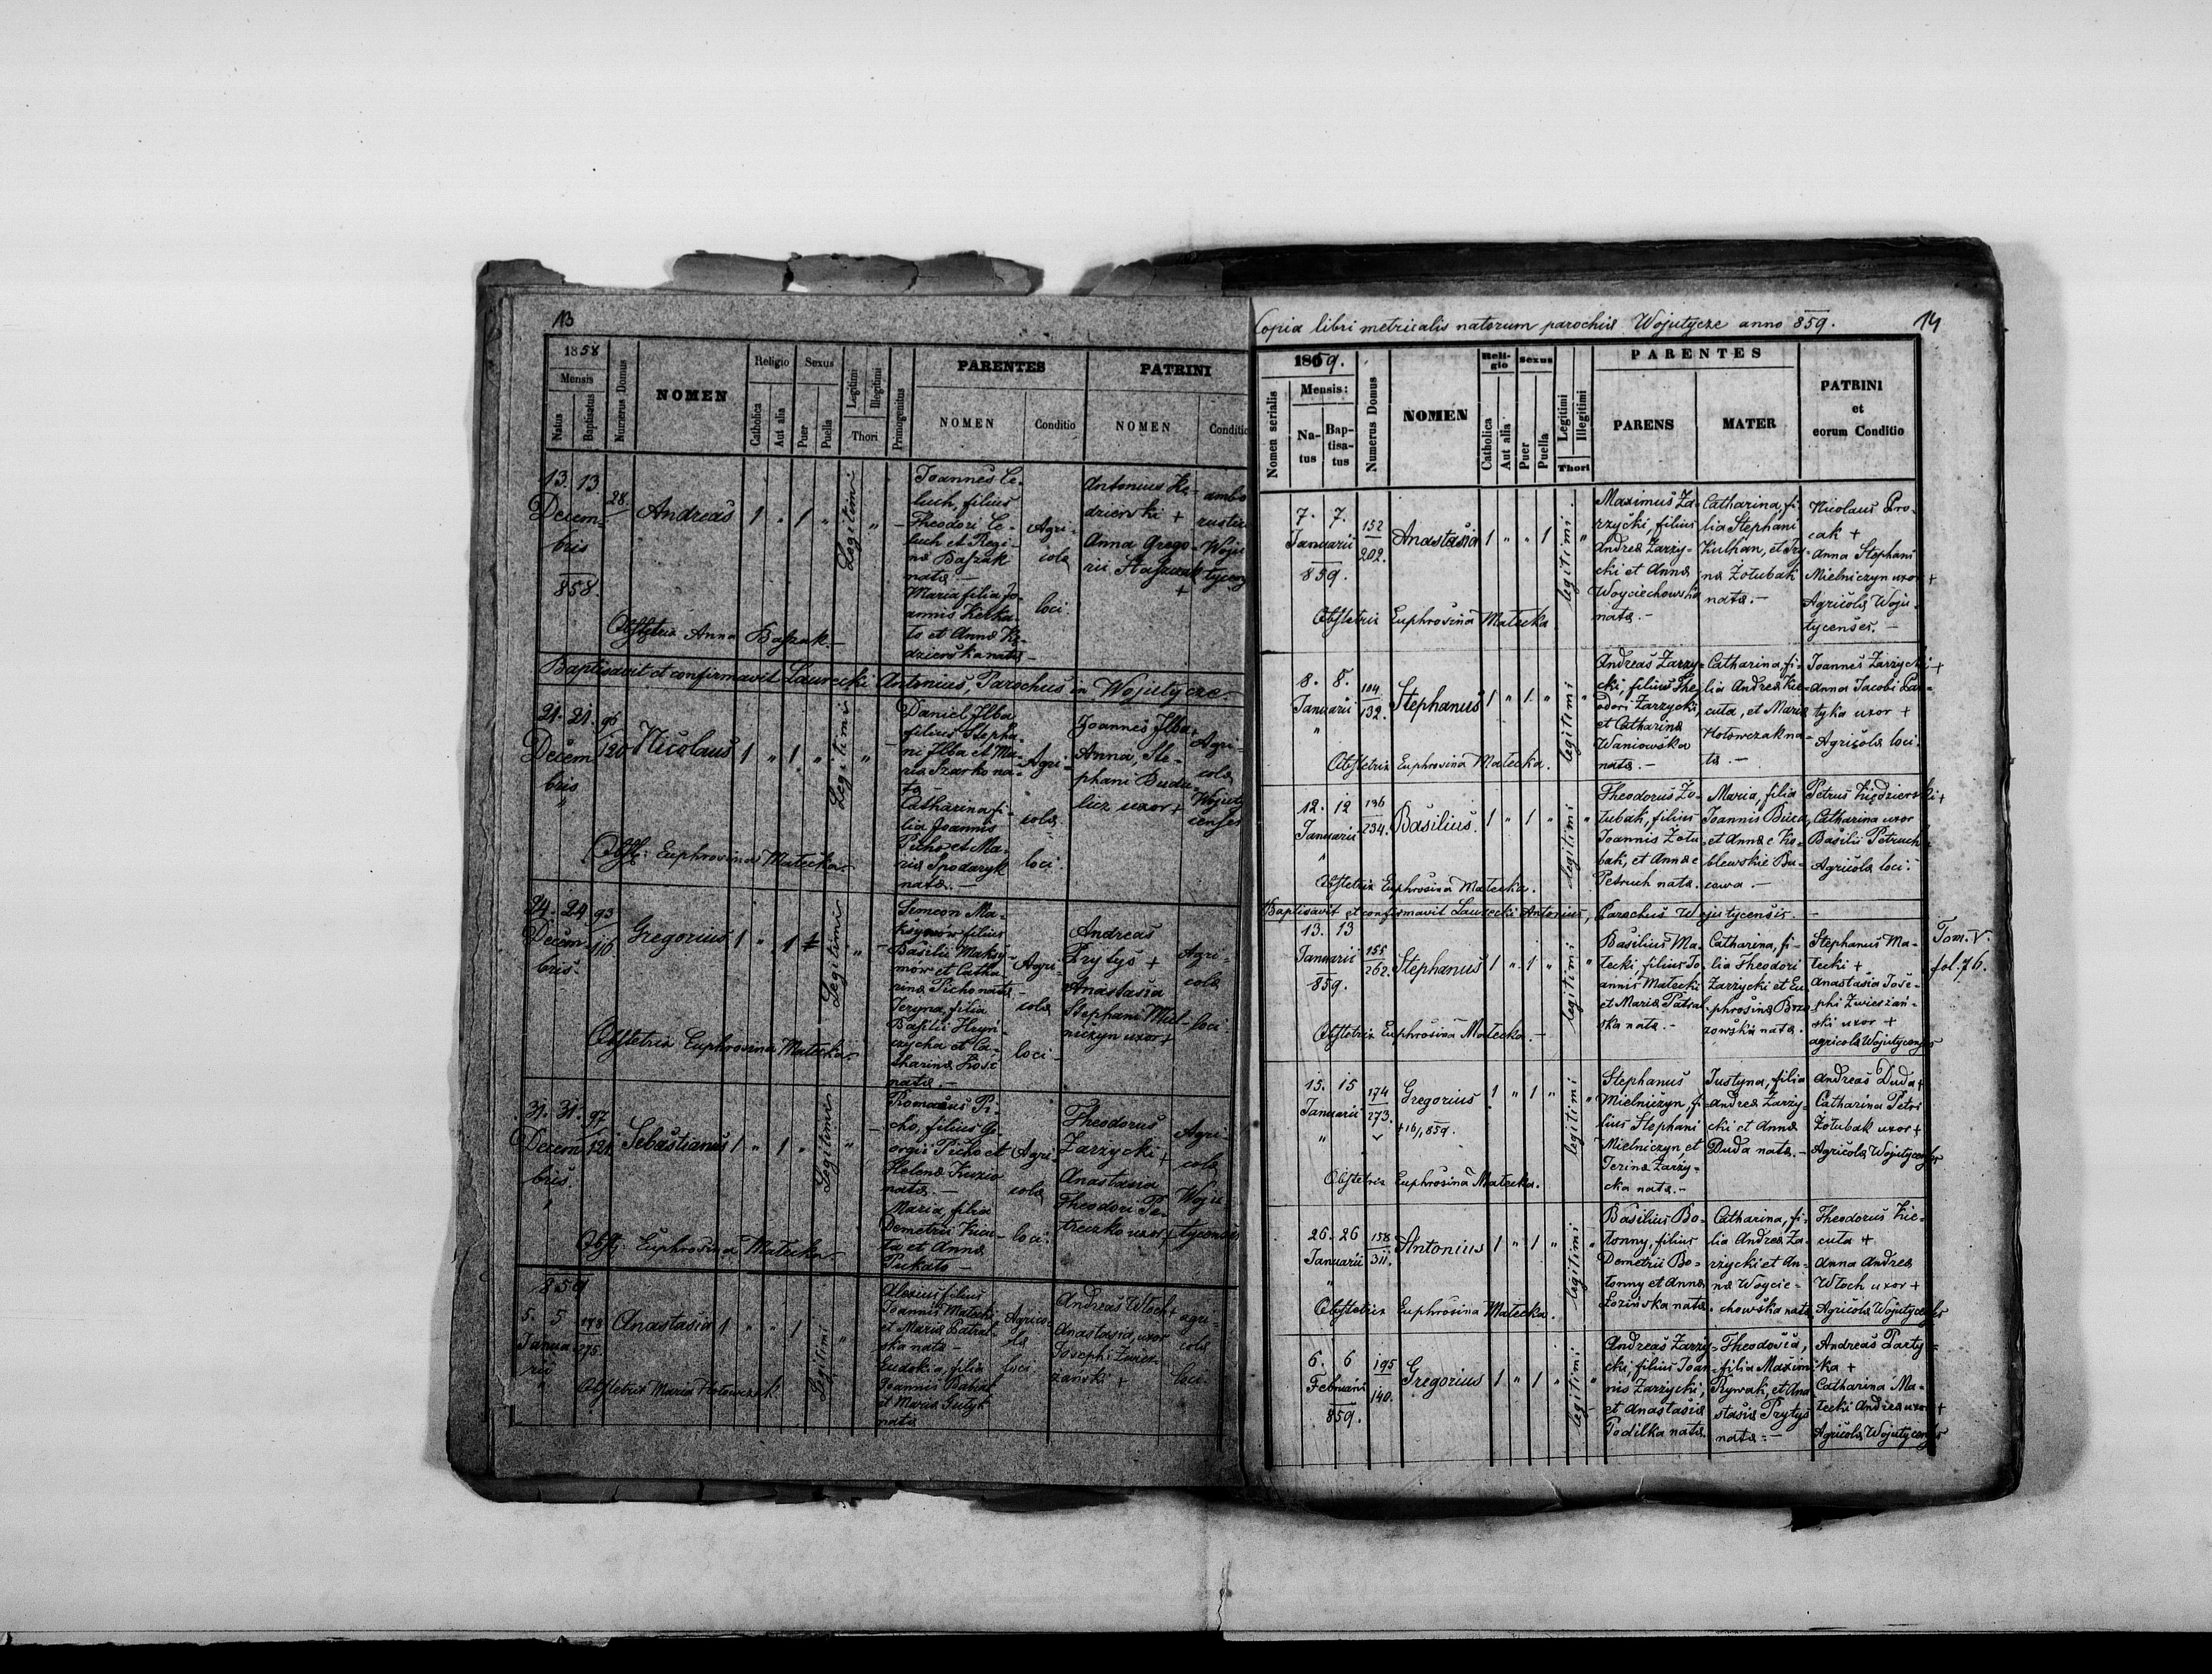 13
1858
Mensis
Natus
Baptisatus
Numerus Domus
NOMEN
Religio
Catholica
Aut alia
Sexus
Puer
Puella
Legitimi
Illegitimi
Thori
Primogenitus
PARENTES
NOMEN
Conditio
PATRINI
NOMEN
Conditio
13. 13
Decem-
bris
858.
28.
Andreas
1 " 1 "
Legitimi
"
Joannes Ce-
luch, filius
Theodori Ce-
luch et Regi-
na
nata -
Maria filia Jo-
annis
to et Anna Ke-
dzierska nata -
Agri-
cola
loci.
Antonius Ke-
dzierski +
Anna Grego-
rii
+
ambo
rustici
Woju
tycens
Obstetrix Anna
Baptisavit et confirmavit Laurecki Antonius, Parochus in Wojutycze.
21. 21.
Decem
bris
"
96
120
Nicolaus
1 " 1 "
Legitimi
"
Daniel Ilba
filius Stepha-
ni Ilba et Ma-
ria Szarko na-
ta -
Catharina fi-
lia Joannis
Picho et Ma-
ria Spodaryk
nata. -
Agri-
cola
loci.
Joannes Ilba +
Anna, Ste-
phani Budu-
licz uxor +
Agri-
cola
Wojuty
censes
Obst: Euphrosina Matecka.
24. 24.
Decem
bris.
93
116
Gregorius
1 " 1
Legitimi
"
Simeon Ma-
ksymow filius
Basilii Maksy-
mów et Catha-
rina Picho nata -
Jeryna, filia
Basilii Hryń-
czycha et Ca-
tharina
nata. -
Agri-
cola
loci -
Andreas
Prytys +
Anastasia
Stephani Miel-
niczyn uxor +
Agri-
cola
loci
Obstetrix Euphrosina Matecka.
31. 31.
Decem
bris.
"
97
121
Sebastianus
1 " 1 "
Legitimi
"
Romanus Pi-
cho, filius Ge-
orgii Picho et
Helena Kuzio
nata. -
Maria, filia
Demetrii Kicu-
ta et Anna
Pukato -
Agri-
cola
loci.
Theodorus
Zarzycki +
Anastasia
Theodori Pe-
treczko uxor +
Agri-
cola
Woju
tycenses
Obst: Euphrosina Matecka -
859
5. 5
Janua
rii
"
178
275.
Anastasia
1 " " 1
Legitimi
"
Alexius filius
Joannis Matecki
et Maria Patral-
ska nata -
Eudokia, filia
Joannis
et Maria
nata
Agrico
la
loci
Andreas Wloch +
Anastasia, uxor
Josephi Zwier-
żanski +
agri-
cola
loci.
Obstetrix Maria Hotowczak.
Copia libri metricalis natorum parochiæ Wojutycze anno 859.
14
1859.
Nomen serialis
Mensis:
Na-
tus
Bap-
tisa-
tus
Numerus Domus
NOMEN
Reli-
gio
Catholica
Aut alia
Sexus
Puer
Puella
Legitimi
Illegitimi
Thori
PARENTES
PARENS
MATER
PATRINI
et
eorum Conditio
7. 7.
Januarii
859.
152
202.
Anastasia
1 " " 1
legitimi
"
Maximus Za-
rzycki, filius
Andrea Zarzy-
cki et Anna
Woyciechowska
nata. -
Catharina, fi-
lia Stephani
Kulhan, et Iry-
na Zotubak
nata. -
Nicolaus Pro-
cak +
Anna Stephani
Mielniczyn uxor +
Agricola Woju-
tycenses. -
Obstetrix Euphrosina Matecka
8. 8.
Januarii
"
104
132.
Stephanus
1 " 1 "
legitimi
"
Andreas Zarzy-
cki, filius The-
odori Zarzycki,
et Catharina
Waniowska
nata. -
Catharina, fi-
lia Andrea Kie-
cuta, et Maria
Hotowczak na-
ta. -
Joannes Zarzycki +
Anna Jacobi Par-
tyka uxor +
Agricola loci.
Obstetrix Euphrosina Matecka.
12. 12
Januarii
"
136
234.
Basilius.
1 " 1 "
legitimi
"
Theodorus Zo-
tubak, filius
Joannis Zotu-
bak, et Annæ
Petruch nata.
Maria, filia
Joannis Buca,
et Annæ Ko-
blewskie Bu-
cowa. -
Petrus Kiedzierski +
Catharina uxor
Basilii Petruch +
Agricola loci.
Obstetrix Euphrosina Matecka.
Baptisavit et confirmavit Laurecki Antonius, Parochus Wojutycensis. -
13. 13
Januarii
859.
155
262.
Stephanus
1 " 1 "
legitimi
"
Basilius Ma-
tecki, filius Jo-
annis Matecki
et Maria Patral-
ska nata. -
Catharina, fi-
lia Theodori
Zarzycki et Eu-
phrosina Brzo-
zowska nata.
Stephanus Ma-
tecki +
Anastasia Jose-
phi Zwierżań-
ski uxor +
agricola Wojutycenses
Tom. V.
fol. 76.
Obstetrix Euphrosina Matecka. -
15. 15
Januarii
"
174
273.
Gregorius
+ 16/1 859.
1 " 1 "
legitimi
"
Stephanus
Mielniczyn, fi-
lius Stephani
Mielniczyn, et
Jerina Zarzy-
cka nata. -
Justyna, filia
Andrea Zarzy-
cki et Anna
Duda nata. -
Andreas Duda +
Catharina Petri
Żotubak uxor +
Agricola Wojutycenses
Obstetrix Euphrosina Matecka.
26. 26
Januarii
"
158
311.
Antonius
1 " 1 "
legitimi
"
Basilius Bo-
tonny, filius
Demetrii Bo-
tonny et Anna
Łozińska nata.
Catharina, fi-
lia Andrea Za-
rzycki et An-
na Woycie-
chowska nata
Theodorus Kie-
cuta +
Anna Andrea
Wtoch uxor +
Agricola Wojutycenses
Obstetrix Euphrosina Matecka.
6. 6
Februarii
859.
195
140.
Gregorius
1 " 1 "
legitimi
"
Andreas Zarzy-
cki, filius Joan-
nis Zarzycki,
et Anastasia
Podilka nata.
Theodosia,
filia Maximi
Rywak, et Ana
stasia Prytys
nata: -
Andreas Party-
ka +
Catharina Ma-
tecki Andrea uxor +
Agricola Wojutycenses